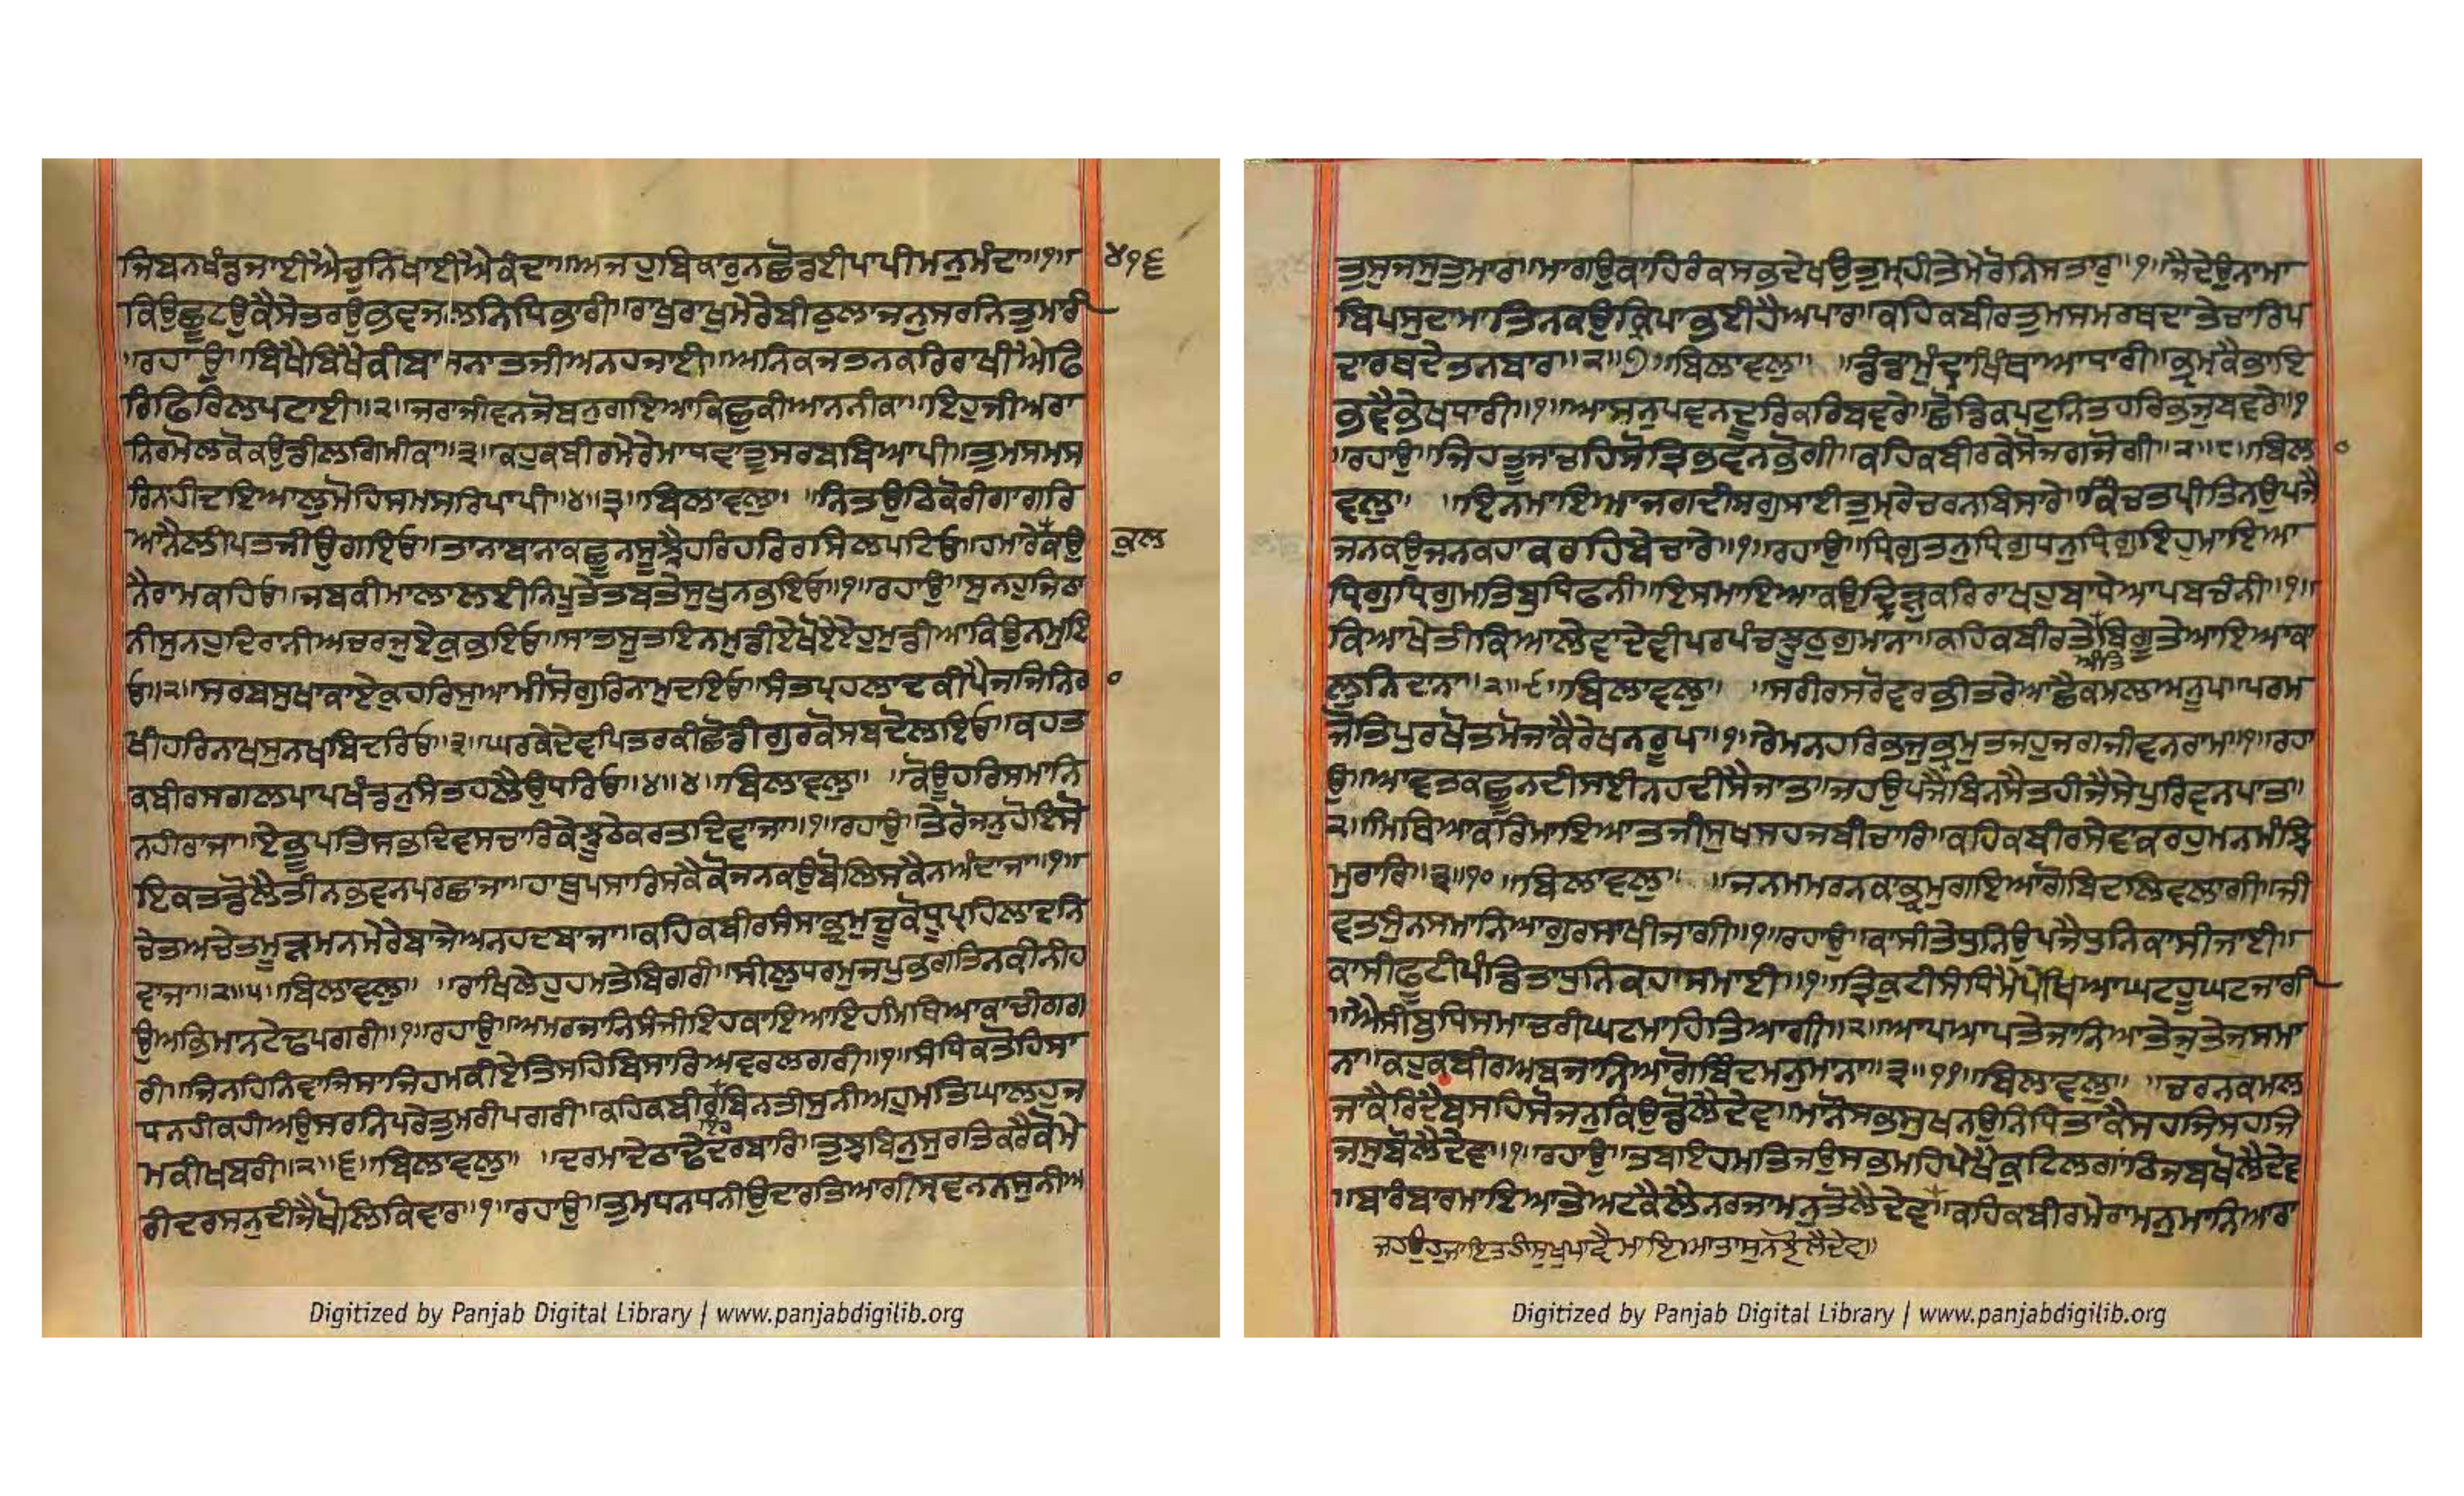 ਜਿਬਨਖੰਡਜਾਈਐਚੁਨਿਖਾਈਐਕੰਦਾ॥ਅਜਹੁਬਿਕਾਰੁਨਛੋਡਈਪਾਪੀਮਨੁਮੰਦਾ॥੧॥ ੪੧੬
ਕਿਉਛੂਟਉਕੈਸੇਤਰਉਭਵਜਲਨਿਧਿਭਾਰੀ॥ਰਾਖੁਰਾਖੁਮੇਰੇਬੀਠੁਲਾਜਨੁਸਰਨਿਤੁਮਾਰੀ
॥ਰਹਾਉ॥ਬਿਖੈਬਿਖੈਕੀਬਾਸਨਾਤਜੀਅਨਹਜਾਈ॥ਅਨਿਕਜਤਨਕਰਿਰਾਖੀਐਫਿ
ਰਿਫਿਰਿਲਪਟਾਈ॥੨॥ਜਰਾਜੀਵਨਜੋਬਨੁਗਇਆਕਿਛੁਕੀਆਨਨੀਕਾ॥ਇਹੁਜੀਅਰਾ
ਨਿਰਮੋਲਕੋਕਉਡੀਲਗਿਮੀਕਾ॥੩॥ਕਹੁਕਬੀਰਮੇਰੇਮਾਧਵਾਤੂਸਰਬਬਿਆਪੀ॥ਤੁਮਸਮਸ
ਰਿਨਹੀਦਇਆਲੁਮੋਹਿਸਮਸਰਿਪਾਪੀ॥੪॥੩॥ਬਿਲਾਵਲੁ॥ ॥ਨਿਤਉਠਿਕੋਰੀਗਾਗਰਿ
ਆਨੈਲੀਪਤਜੀਉਗਇਓ॥ਤਾਨਾਬਾਨਾਕਛੂਨਸੂਝੈਹਰਿਹਰਿਰਸਿਲਪਟਿਓ॥ਹਮਾਰੇਕਉ ਕੁਲ
ਨੈਰਾਮਕਹਿਓ॥ਜਬਕੀਮਾਲਾਲਈਨਿਪੂਤੇਤਬਤੇਸੁਖੁਨਭਇਓ॥੧॥ਰਹਾਉ॥ਸੁਨਹੁਜਿਠਾ
ਨੀਸੁਨਹੁਦਿਰਾਨੀਅਚਰਜੁਏਕੁਭਇਓ॥ਸਾਤਸੂਤਇਨਮੁਡੀਏਖੋਏਏਹੁਮੁਡੀਆਕਿਉਨਮੁਇ
ਓ॥੨॥ਸਰਬਸੁਖਾਕਾਏਕੁਹਰਿਸੁਆਮੀਸੋਗੁਰਿਨਾਮੁਦਇਓ॥ਸੰਤਪ੍ਰਹਲਾਦਕੀਪੈਜਜਿਨਿਰਾ ੦
ਖੀਹਰਿਨਾਖਸੁਨਖਬਿਦਰਿਓ॥੩॥ਘਰਕੇਦੇਵਪਿਤਰਕੀਛੋਡੀਗੁਰਕੋਸਬਦੋਲਇਓ॥ਕਹਤ
ਕਬੀਰਸਗਲਪਾਪਖੰਡਨੁਸੰਤਹਲੈਉਧਰਿਓ॥੪॥੪॥ਬਿਲਾਵਲੁ॥ ॥ਕੋਊਹਰਿਸਮਾਨਿ
ਨਹੀਰਾਜਾ॥ਏਭੂਪਤਿਸਭਦਿਵਸਚਾਰਿਕੇਝੂਠੇਕਰਤਦਿਵਾਜਾ॥੧॥ਰਹਾਉ॥ਤੇਰੋਜਨੁਹੋਇਸੋ
ਇਕਤਡੋਲੈਤੀਨਭਵਨਪਰਛਾਜਾ॥ਹਾਥੁਪਸਾਰਿਸਕੈਕੋਜਨਕਉਬੋਲਿਸਕੈਨਅੰਦਾਜਾ॥੧॥
ਚੇਤਅਚੇਤਮੂੜਮਨਮੇਰੇਬਾਜੇਅਨਹਦਬਾਜਾ॥ਕਹਿਕਬੀਰਸੰਸਾਭ੍ਰਮੁਚੂਕੋਧ੍ਰੂਪ੍ਰਹਿਲਾਦਨਿ
ਵਾਜਾ॥੨॥੫॥ਬਿਲਾਵਲੁ॥ ॥ਰਾਖਿਲੇਹੁਹਮਤੇਬਿਗਰੀ॥ਸੀਲੁਧਰਮੁਜਪੁਭਗਤਿਨਕੀਨੀਹ
ਉਅਭਿਮਾਨਟੇਢਪਗਰੀ॥੧॥ਰਹਾਉ॥ਅਮਰਜਾਨਿਸੰਜੀਇਹਕਾਇਆਇਹਮਿਥਿਆਕਾਚੀਗਗ
ਰੀ॥ਜਿਨਹਿਨਿਵਾਜਿਸਾਜਿਹਮਕੀਏਤਿਸਹਿਬਿਸਾਰਿਅਵਰਲਗਰੀ॥੧॥ਸੰਧਿਕਤੋਹਿਸਾ
ਧਨਹੀਕਹੀਅਉਸਰਨਿਪਰੇਤੁਮਰੀਪਗਰੀ॥ਕਹਿਕਬੀਰਬਿਨਤੀਸੁਨੀਅਹੁਮਤਿਘਾਲਹੁਜ
ਮਕੀਖਬਰੀ॥੨॥੬॥ਬਿਲਾਵਲੁ॥ ॥ਦਰਮਾਦੇਠਾਢੇਦਰਬਾਰਿ॥ਤੁਝਬਿਨੁਸੁਰਤਿਕਰੈਕੋਮੇ
ਰੀਦਰਸਨੁਦੀਜੈਖੋਲਿਕਿਵਾਰ॥੧॥ਰਹਾਉ॥ਤੁਮਧਨਧਨੀਉਦਾਰਤਿਆਗੀਸ੍ਰਵਨਨਸੁਨੀਅ
ਤੁਸੁਜਸੁਤੁਮਾਰ॥ਮਾਗਉਕਾਹਿਰੰਕਸਭਦੇਖਉਤੁਮ੍ਹਹੀਤੇਮੇਰੋਨਿਸਤਾਰੁ॥੧॥ਜੈਦੇਉਨਾਮਾ
ਬਿਪਸੁਦਾਮਾਤਿਨਕਉਕ੍ਰਿਪਾਭਈਹੈਅਪਾਰ॥ਕਹਿਕਬੀਰਤੁਮਸਮਰਥਦਾਤੇਚਾਰਿਪ
ਦਾਰਥਦੇਤਨਬਾਰ॥੨॥੭॥ਬਿਲਾਵਲੁ॥ ॥ਡੰਡਾਮੁੰਦ੍ਰਾਖਿੰਥਾਆਧਾਰੀ॥ਭ੍ਰਮਕੈਭਾਇ
ਭਵੈਭੇਖਧਾਰੀ॥੧॥ਆਸਨੁਪਵਨਦੂਰਿਕਰਿਬਵਰੇ॥ਛੋਡਿਕਪਟੁਨਿਤਹਰਿਭਜੁਬਵਰੇ॥੧
॥ਰਹਾਉ॥ਜਿਹਤੂਜਾਚਹਿਸੋਤ੍ਰਿਭਵਨਭੋਗੀ॥ਕਹਿਕਬੀਰਕੇਸੋਜਗਜੋਗੀ॥੨॥੮॥ਬਿਲਾ ੦
ਵਲੁ॥ ॥ਇਨਮਾਇਆਜਗਦੀਸਗੁਸਾਈਤੁਮ੍ਰੇਚਰਨਬਿਸਾਰੇ॥ਕਿੰਚਤਪ੍ਰੀਤਿਨਉਪਜੈ
ਜਨਕਉਜਨਕਹਾਕਰਹਿਬੇਚਾਰੇ॥੧॥ਰਹਾਉ॥ਧ੍ਰਿਗੁਤਨੁਧ੍ਰਿਗੁਧਨੁਧ੍ਰਿਗੁਇਹੁਮਾਇਆ
ਧ੍ਰਿਗੁਧ੍ਰਿਗੁਮਤਿਬੁਧਿਫਨੀ॥ਇਸਮਾਇਆਕਉਦ੍ਰਿੜੁਕਰਿਰਾਖਹੁਬਾਧੇਆਪਬਚੰਨੀ॥੧॥
ਕਿਆਖੇਤੀਕਿਆਲੇਵਾਦੇਵੀਪਰਪੰਚਝੂਠੁਗੁਮਾਨਾ॥ਕਹਿਕਬੀਰਤੇਬਿਗੂਤੇਆਇਆਕਾ
ਅੰਤਿ
ਲੁਨਿਦਾਨਾ॥੨॥੯॥ਬਿਲਾਵਲੁ॥ ॥ਸਰੀਰਸਰੋਵਰਭੀਤਰੇਆਛੈਕਮਲਅਨੂਪ॥ਪਰਮ
ਜੋਤਿਪੁਰਖੋਤਮੋਜਾਕੈਰੇਖਨਰੂਪ॥੧॥ਰੇਮਨਹਰਿਭਜੁਭ੍ਰਮੁਤਜਹੁਜਗਜੀਵਨਰਾਮ॥੧॥ਰਹਾ
ਉ॥ਆਵਤਕਛੂਨਦੀਸਈਨਹਦੀਸੈਜਾਤ॥ਜਹਉਪਜੈਬਿਨਸੈਤਹੀਜੈਸੇਪੁਰਿਵਨਪਾਤ॥
੨॥ਮਿਥਿਆਕਰਿਮਾਇਆਤਜੀਸੁਖਸਹਜਬੀਚਾਰਿ॥ਕਹਿਕਬੀਰਸੇਵਾਕਰਹੁਮਨਮੰਝਿ
ਮੁਰਾਰਿ॥੩॥੧੦॥ਬਿਲਾਵਲੁ॥ ॥ਜਨਮਮਰਨਕਾਭ੍ਰਮੁਗਇਆਗੋਬਿਦਲਿਵਲਾਗੀ॥ਜੀ
ਵਤਸੁੰਨਸਮਾਨਿਆਗੁਰਸਾਖੀਜਾਗੀ॥੧॥ਰਹਾਉ॥ਕਾਸੀਤੇਧੁਨਿਉਪਜੈਧੁਨਿਕਾਸੀਜਾਈ॥
ਕਾਸੀਫੂਟੀਪੰਡਿਤਾਧੁਨਿਕਹਾਸਮਾਈ॥੧॥ਤ੍ਰਿਕੁਟੀਸੰਧਿਮੈਪੇਖਿਆਘਟਹੂਘਟਜਾਗੀ
॥ਐਸੀਬੁਧਿਸਮਾਚਰੀਘਟਮਾਹਿਤਿਆਗੀ॥੨॥ਆਪਆਪਤੇਜਾਨਿਆਤੇਜਤੇਜੁਸਮਾ
ਨਾ॥ਕਹੁਕਬੀਰਅਬਜਾਨਿਆਗੋਬਿੰਦਮਨੁਮਾਨਾ॥੩॥੧੧॥ਬਿਲਾਵਲੁ॥ ॥ਚਰਨਕਮਲ
ਜਾਕੈਰਿਦੈਬਸਹਿਸੋਜਨੁਕਿਉਡੋਲੈਦੇਵ॥ਮਾਨੋਸਭਸੁਖਨਉਨਿਧਿਤਾਕੈਸਹਜਿਸਹਜਿ
ਜਸੁਬੋਲੈਦੇਵ॥੧॥ਰਹਾਉ॥ਤਬਇਹਮਤਿਜਉਸਭਮਹਿਪੇਖੈਕੁਟਿਲਗਾਂਠਿਜਬਖੋਲੈਦੇਵ
॥ਬਾਰੰਬਾਰਮਾਇਆਤੇਅਟਕੈਲੈਨਰਜਾਮਨੁਤੋਲੈਦੇਵ॥ਕਹਿਕਬੀਰਮੇਰਾਮਨੁਮਾਨਿਆਰਾ
ਜਹਉਹੁਜਾਇਤਹੀਸੁਖੁਪਾਵੈਮਾਇਆਤਾਸੁਨਝੋਲੈਦੇਵ॥
Digitized by Panjab Digital Library | www.panjabdigilib.org
Digitized by Panjab Digital Library | www.panjabdigilib.org